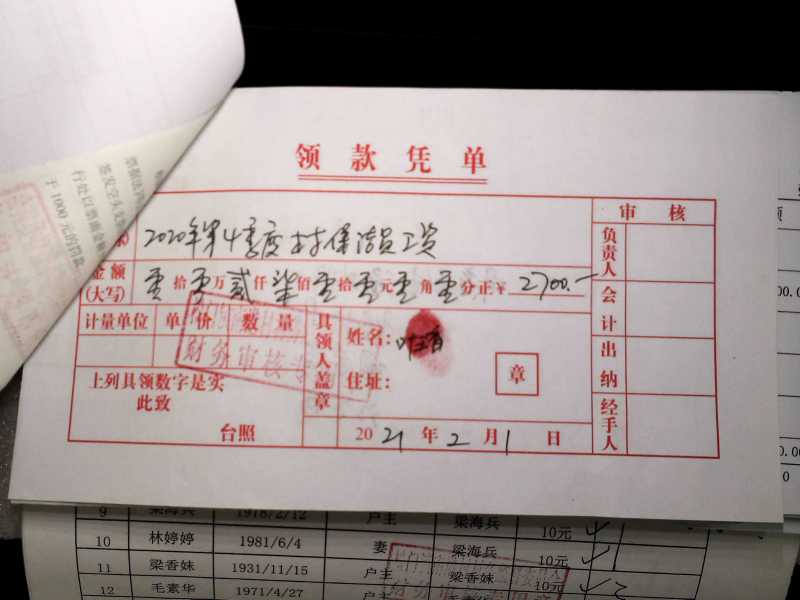 领款凭单
2020年第4季度村保洁员工资
金额
(大写)
零拾零万贰仟柒佰零拾零元零角零分正¥ 2700.-
计量单位 单价 数量
上列具领数字是实
此致
台照
具领人盖章
姓名:
住址:
章
2021年2月1日
审核
负责人
会计
出纳
经手人
财务审核专
票据法
签发空头支
行处以票面金
于1000元的罚款
9 梁海兵 1978/2/12 户主 梁海兵 10元
10 林婷婷 1981/6/4 妻 梁海兵 10元
11 梁香妹 1931/11/15 户主 梁香妹 10元
12 毛素华 1971/4/27 户主